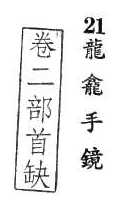 21龍龕手鏡
卷二部首缺